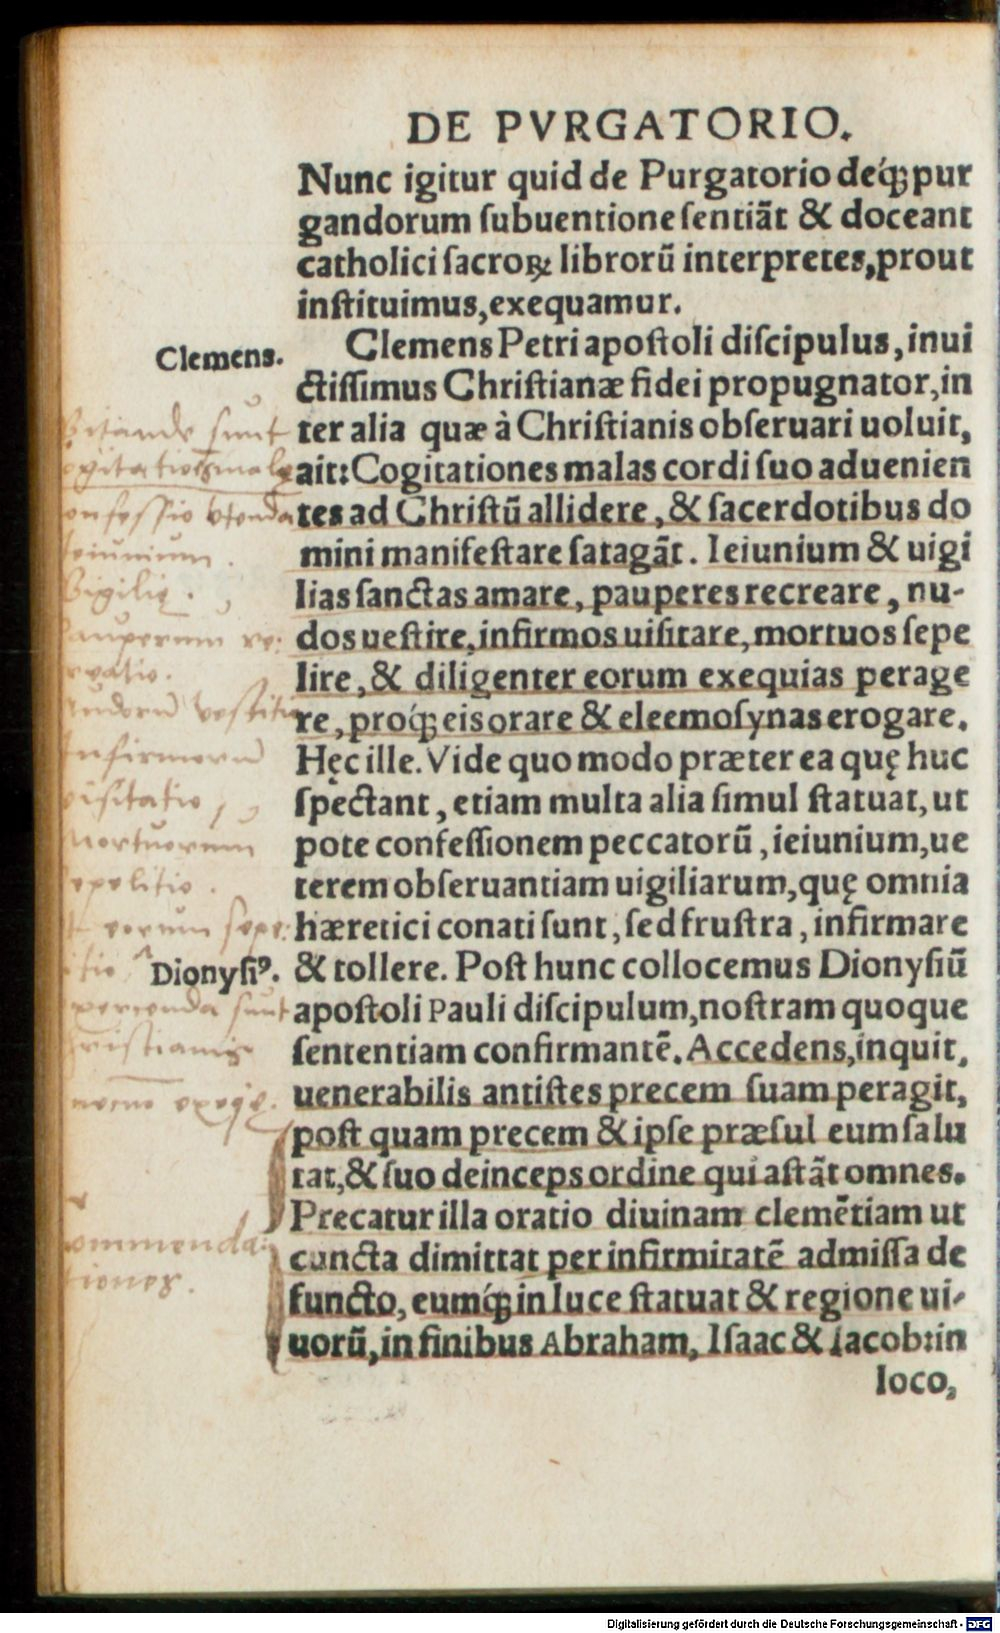 DE PVRGATORIO.
Nunc igitur quid de Purgatorio deq́ꝫ pur
gandorum ſubuentione ſentiāt & doceant
catholici ſacroꝝ librorū interpretes, prout
inſtituimus, exequamur.
Clemens.
Clemens Petri apoſtoli diſcipulus, inui
ctiſſimus Chriſtianæ fidei propugnator, in
ter alia quæ à Chriſtianis obſeruari uoluit,
ait: Cogitationes malas cordi ſuo aduenien
tes ad Chriſtū allidere, & ſacerdotibus do
mini manifeſtare ſatagāt. Ieiunium & uigi
lias ſanctas amare, pauperes recreare, nu-
dos ueſtire, infirmos uiſitare, mortuos ſepe
lire, & diligenter eorum exequias perage
re, proq́ꝫ eis orare & eleemoſynas erogare.
Hęc ille. Vide quo modo præter ea quę huc
ſpectant, etiam multa alia ſimul ſtatuat, ut
pote confeſſionem peccatorū, ieiunium, ue
terem obſeruantiam uigiliarum, quę omnia
hæretici conati ſunt, ſed fruſtra, infirmare
Dionyſiꝰ.
& tollere. Poſt hunc collocemus Dionyſiū
apoſtoli Pauli diſcipulum, noſtram quoque
ſententiam confirmantē. Accedens, inquit,
uenerabilis antiſtes precem ſuam peragit,
poſt quam precem & ipſe præſul eum ſalu
tat, & ſuo deinceps ordine qui aſtāt omnes.
Precatur illa oratio diuinam clemētiam ut
cuncta dimittat per infirmitatē admiſſa de
functo, eumq́ꝫ in luce ſtatuat & regione ui-
uorū, in finibus Abraham, Iſaac & Iacob: in
loco,
sunt
ieiunium.
Vigilię.
pauperum re:
Infirmorū
visitatio
Mortuorum
sepelitio.
commenda:
tiones.
Digitalisierung gefördert durch die Deutsche Forschungsgemeinschaft - DFG